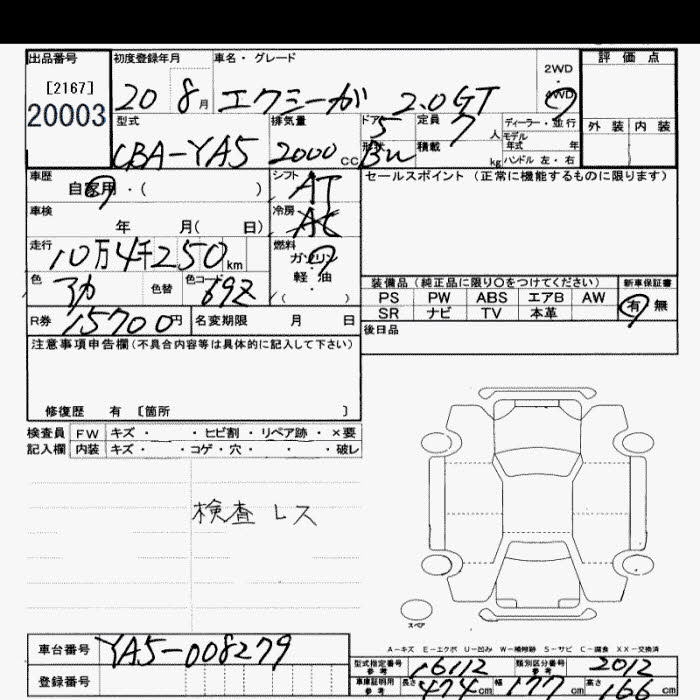 出品番号 初度登録年月 車名・グレード 2WD 評価点
[2167]
20003 20 8月 エクシーガ 2.0GT 4WD
型式 排気量 ドア 5 定員 7人 ディーラー・並行 外装 内装
モデル年式 年
CBA-YA5 2000cc 形状 積載 kg ハンドル 左・右
車歴 自家用・( ) シフト AT セールスポイント(正常に機能するものに限ります)
車検 年 月( 日) 冷房 AC
走行 10万4千250km 燃料 ガソリン
軽・油
( )
色 色替 色コード 69Z 装備品(純正品に限り○をつけてください) 新車保証書
PS PW ABS エアB AW 有 無
SR ナビ TV 本革
R券 15700円 名変期限 月 日 後日品
注意事項申告欄(不具合内容等は具体的に記入して下さい)
修復歴 有 [箇所 ]
検査員 FW キズ・ ・ヒビ割・リペア跡・×要
記入欄 内装 キズ・ ・コゲ・穴・ ・ ・破レ
検査レス
スペア
A-キズ E-エクボ U-凹み W-補修跡 S-サビ C-腐食 XX-交換済
車台番号 YA5-008279 型式指定番号 参考 16112 類別区分番号 参考 2012
登録番号 車庫証明用 参考 長さ 474cm 幅 177cm 高さ 166cm